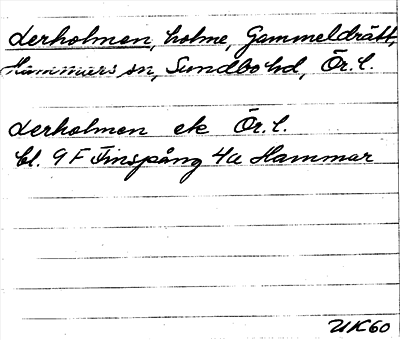 derholmen, holme, Gammeldrätt,
Hammars sn, Sundbo hd, Ör. l.
derholmen ek Ör. l.
bl. 9 F Finspång 4a Hammar
UK60